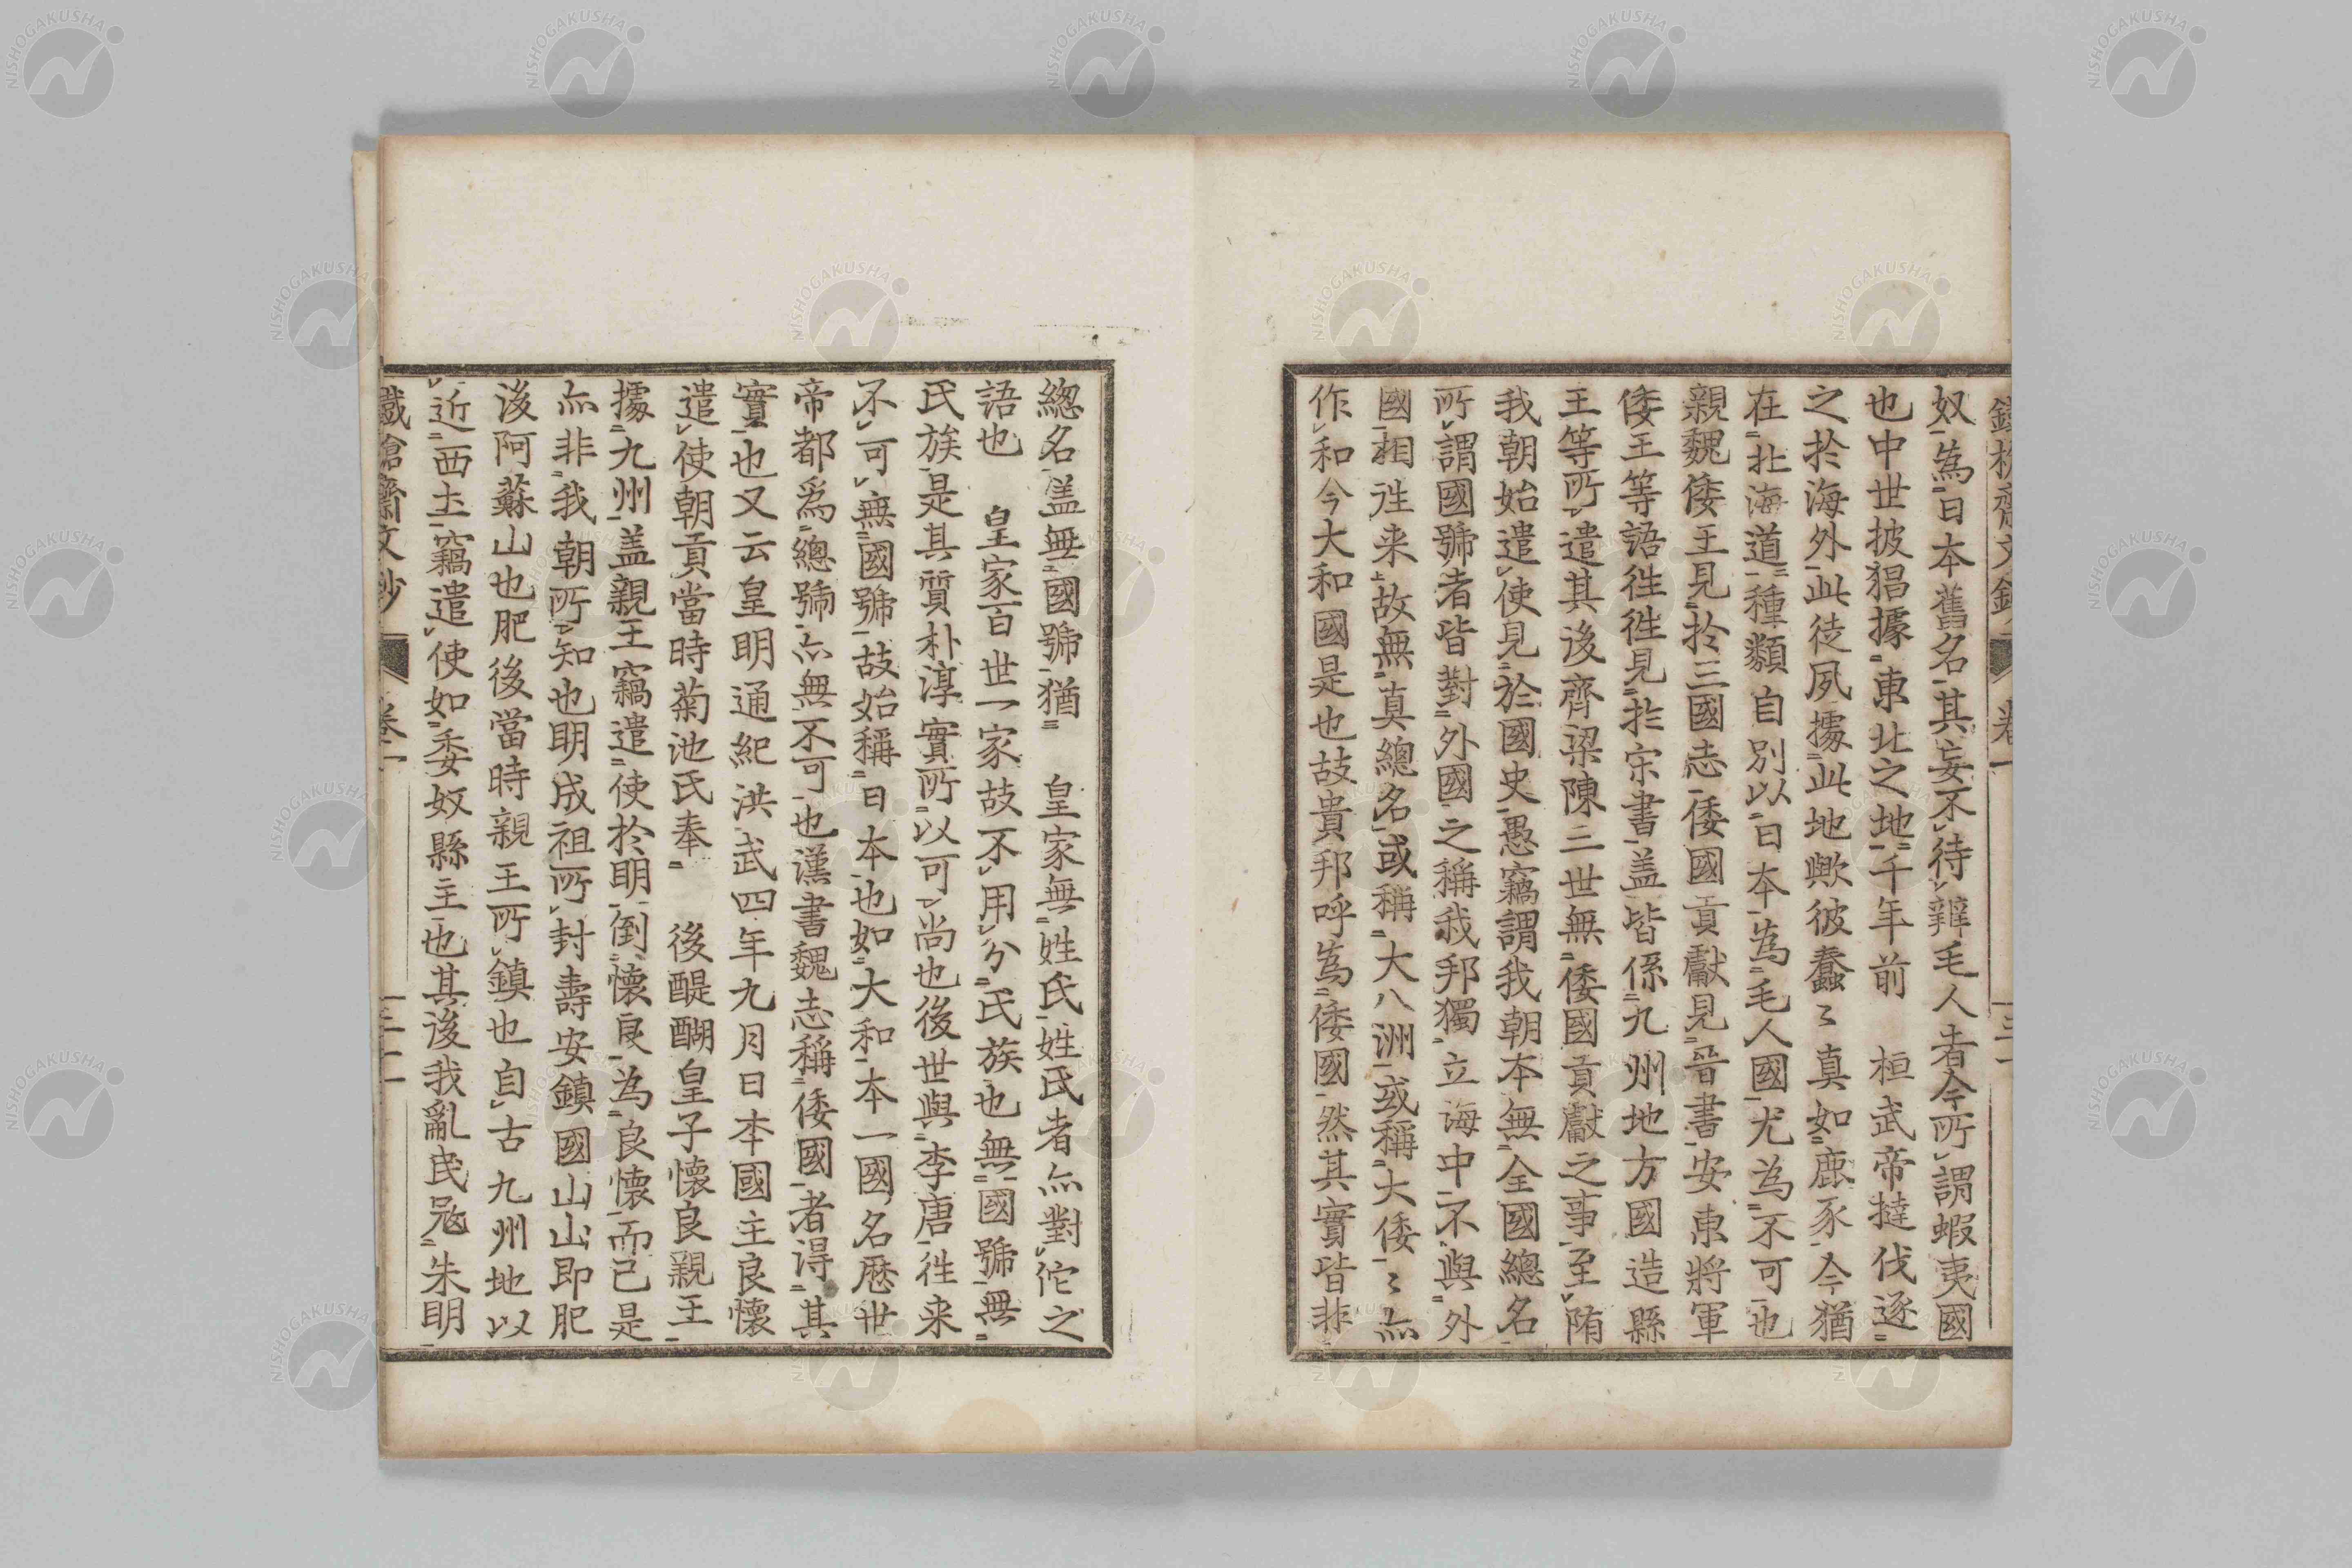 奴為日本舊名其妄不待辯毛人者今所謂蝦夷國
也中世披猖據東北之地千年前　桓武帝撻伐逐
之於海外此徒夙據此地歟彼蠢〻真如鹿豕今猶
在北海道種類自別以日本為毛人國尤為不可也
親魏倭王見於三國志倭國貢獻見晉書安東將軍
倭王等語徃徃見於宋書盖皆係九州地方國造縣
王等所遣其後齊梁陳三世無倭國貢獻之事至隋
我朝始遣使見於國史愚竊謂我朝本無全國總名
所謂國號者皆對外國之稱我邦獨立海中不與外
國相徃来故無真總名或稱大八洲或稱大倭〻亦
作和今大和國是也故貴邦呼為倭國然其實皆非
總名盖無國號猶　皇家無姓氏姓氏者亦對佗之
語也　皇家百世一家故不用分氏族也無國號無
氏族是其質朴淳實所以可尚也後世與李唐徃来
不可無國號故始稱日本也如大和本一國名歴世
帝都爲總號亦無不可也漢書魏志稱倭國者得其
實也又云皇明通紀洪武四年九月日本國主良懷
遣使朝貢當時菊池氏奉　後醍醐皇子懷良親王
據九州盖親王竊遣使於明倒懷良為良懷而已是
亦非我朝所知也明成祖所封壽安鎮國山山即肥
後阿蘇山也肥後當時親王所鎮也自古九州地以
近西土竊遣使如委奴縣主也其後我亂民寇朱明
鐵槍齋文鈔　卷一